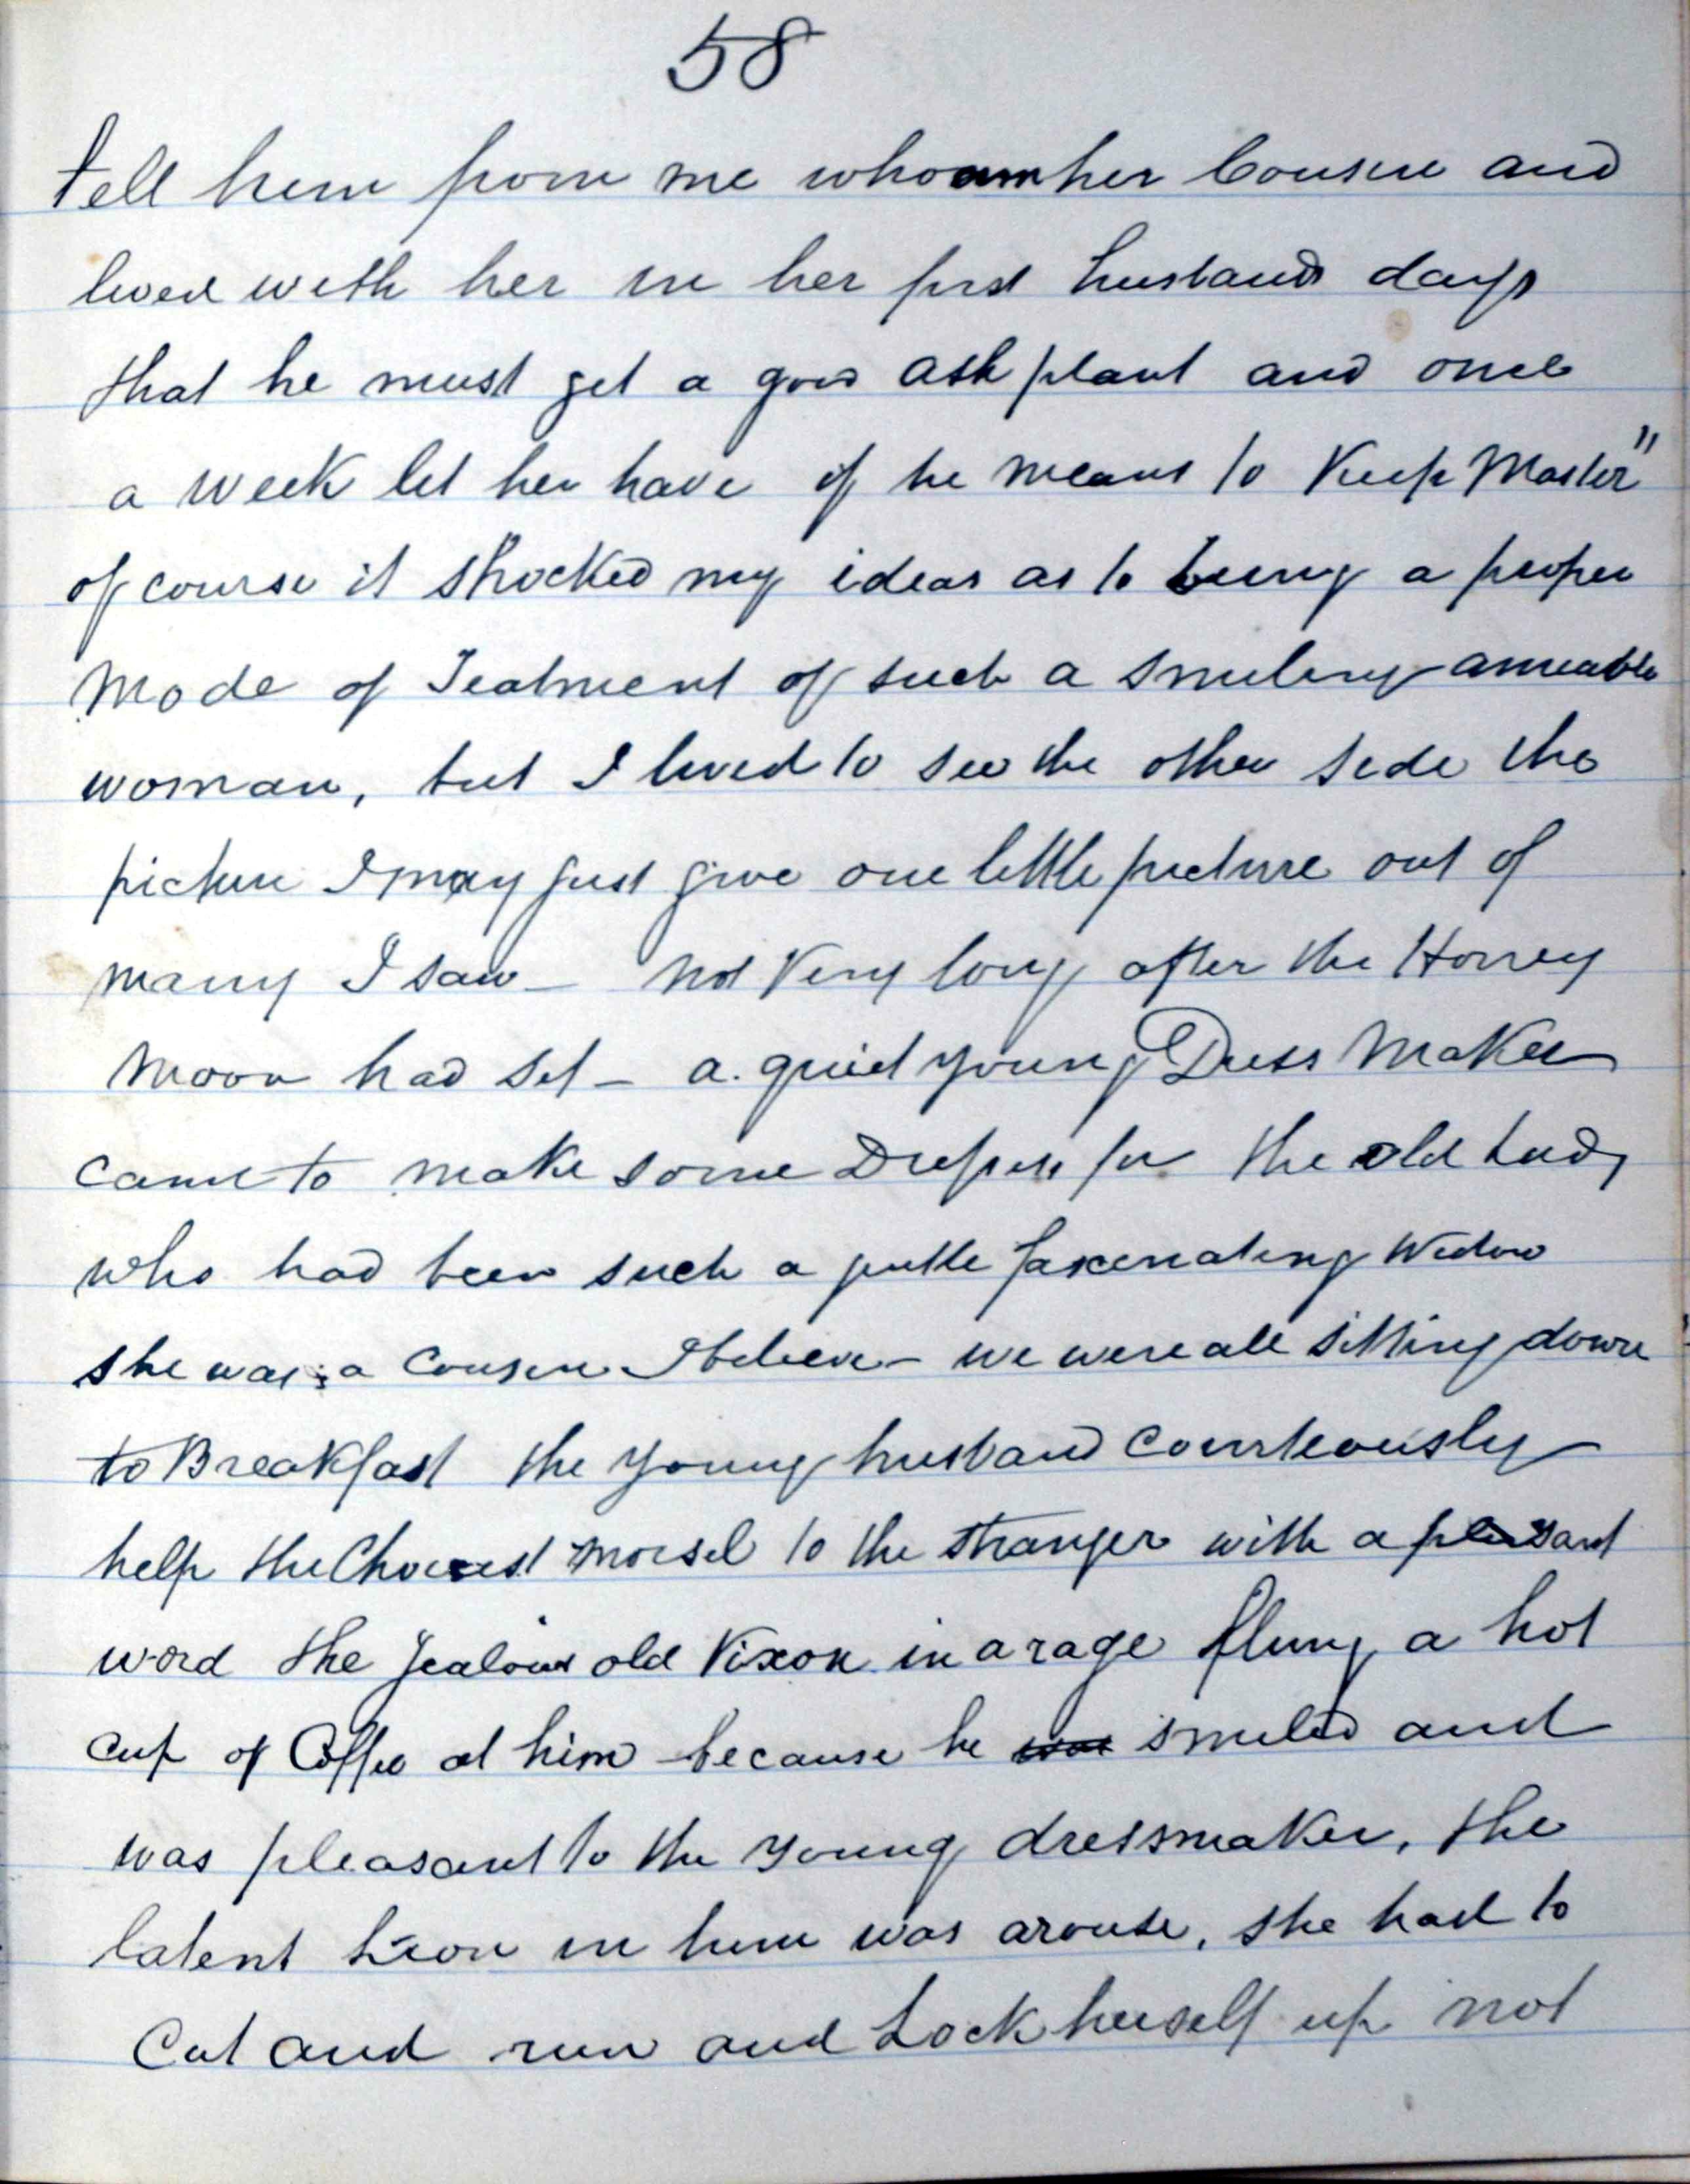 58
tell him from me who am her Cousin and
lived with her in her first husbands days
that he must get a good ash plant and once
a week let her have if he means to Keep Master"
of course it shocked my ideas as to being a proper
Mode of Teatment of such a smiling amiable
woman, but I lived to see the other side the
picture I may just give one little picture out of
many I saw – not Very long after the Honey
Moon had set – a quiet young Dress Maker
came to make some Dresses for the old Lady
who had been such a gentle fascinating Widow
she was a Cousin I believe – we were all sitting down
to Breakfast the young husband Courteously
help the Choicest morsel to the stranger with a pleasant
word the Jealous old Vixon in a rage flung a hot
cup of Coffee at him because he was smiled and
was pleasant to the young dressmaker, the
latent Lion in him was arouse, she had to
Cut and run and Lock herself up not